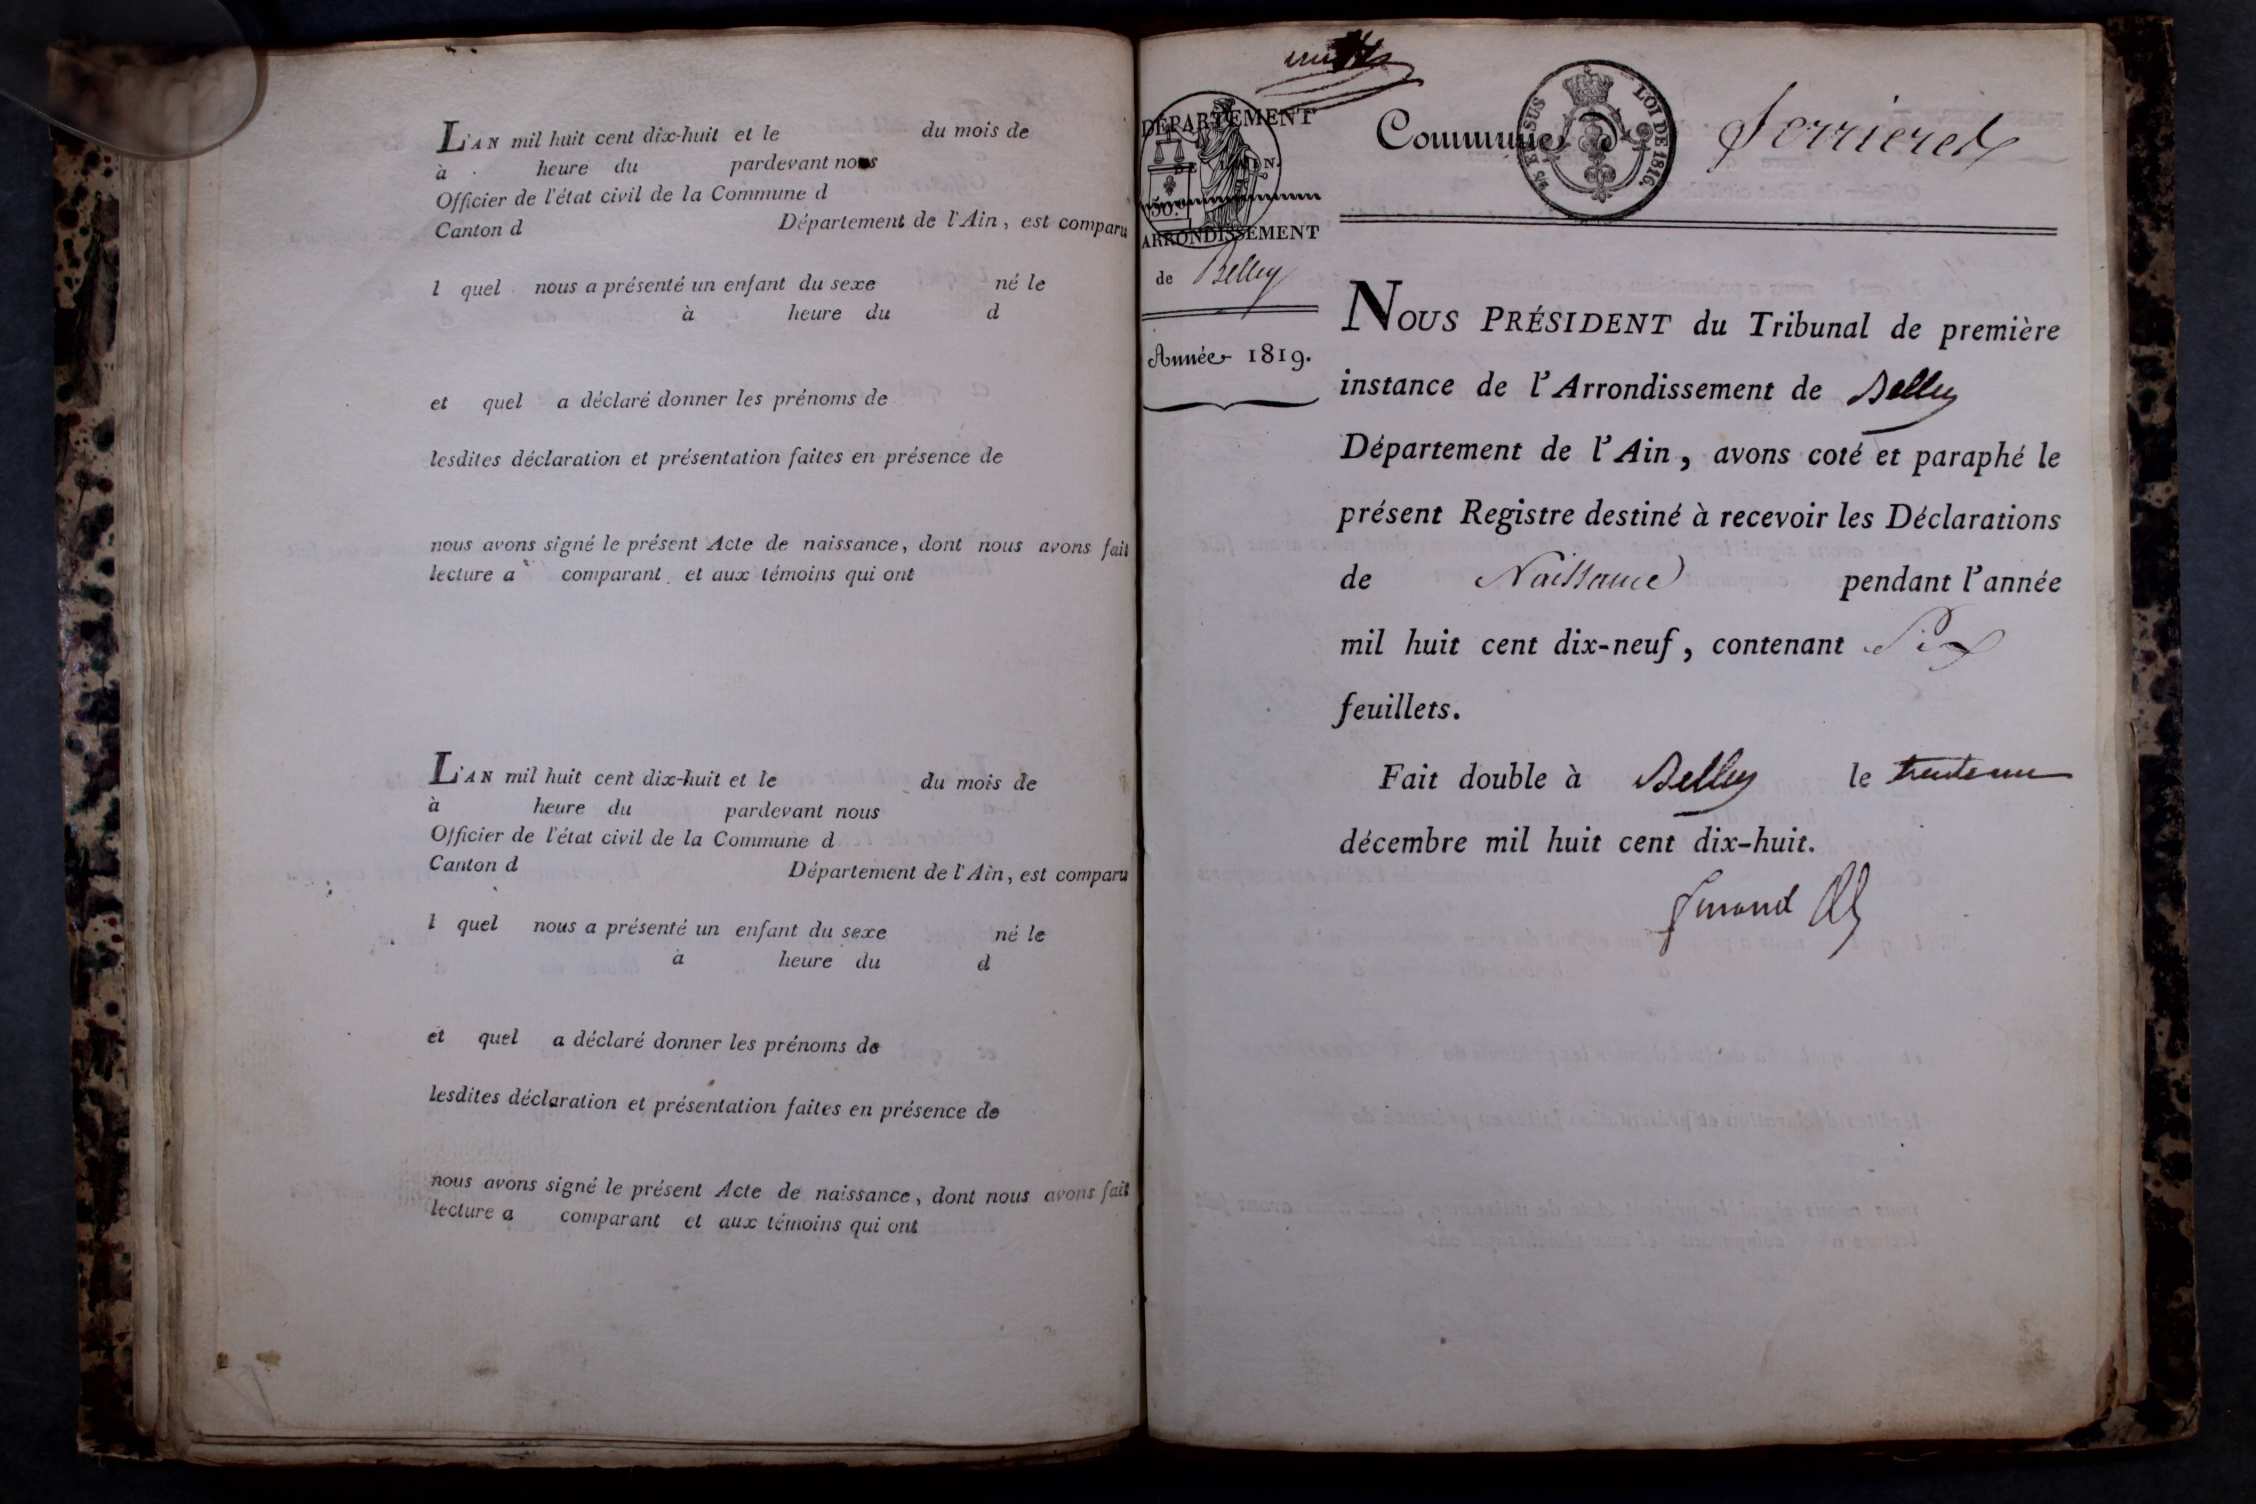 L'AN mil huit cent dix-huit et le du mois de
à heure du pardevant nous
Officier de l'état civil de la Commune d
Canton d Département de l'Ain, est comparu
l quel nous a présenté un enfant du sexe né le
à heure du d
et quel a déclaré donner les prénoms de
lesdites déclaration et présentation faites en présence de
nous avons signé le présent Acte de naissance, dont nous avons fait
lecture a comparant et aux témoins qui ont
L'AN mil huit cent dix-huit et le du mois de
à heure du pardevant nous
Officier de l'état civil de la Commune d
Canton d Département de l'Ain, est comparu
l quel nous a présenté un enfant du sexe né le
à heure du d
et quel a déclaré donner les prénoms de
lesdites déclaration et présentation faites en présence de
nous avons signé le présent Acte de naissance, dont nous avons fait
lecture a comparant et aux témoins qui ont
DÉPARTEMENT
ARRONDISSEMENT
de Belley
Année 1819.
Commune d
LOI DE 1816.
NOUS PRÉSIDENT du Tribunal de première
instance de l'Arrondissement de Belley
Département de l'Ain, avons coté et paraphé le
présent Registre destiné à recevoir les Déclarations
de Naissance pendant l'année
mil huit cent dix-neuf, contenant Six
feuillets.
Fait double à Belley le trente un
décembre mil huit cent dix-huit.